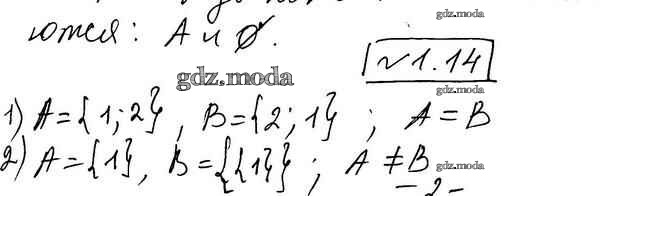 ются: A и ∅.
gdz.moda
gdz.moda
№1.14
gdz.moda
1) A={1;2}, B={2;1}; A=B
gdz.moda
2) A={1}, B={{1}}; A≠B
gdz.moda
-2-